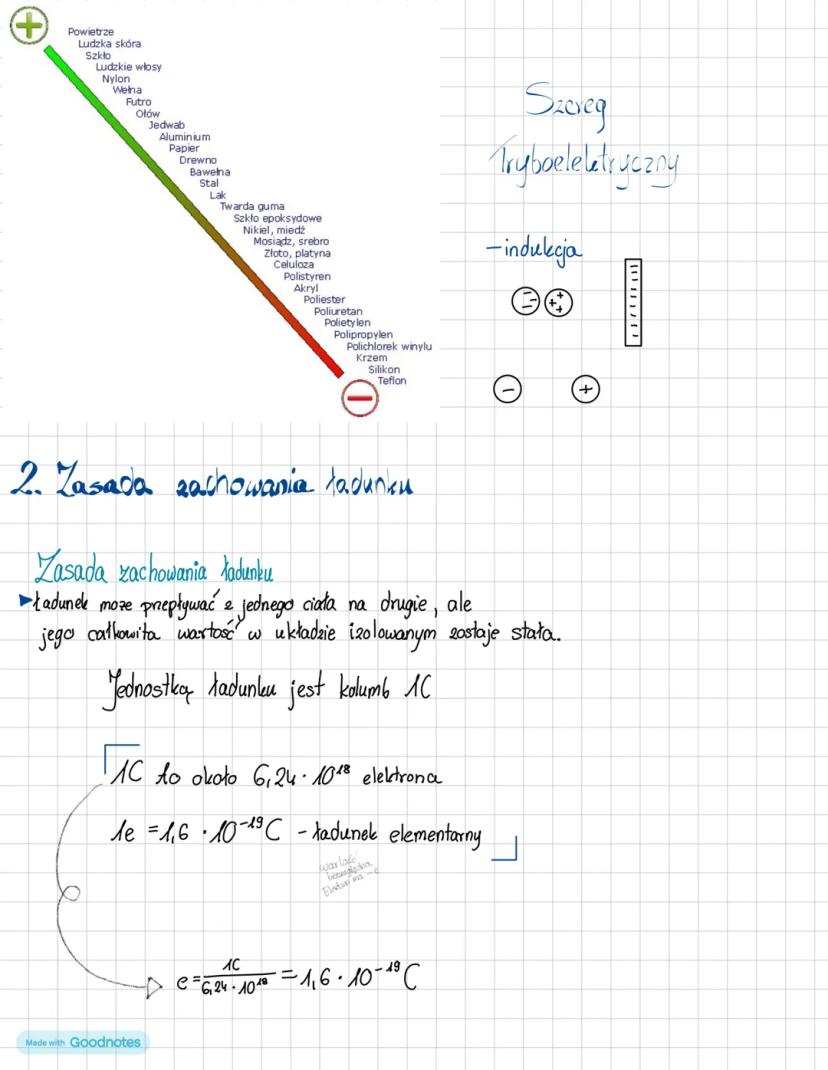 Powietrze
Ludzka skóra
Szkło
Ludzkie włosy
Nylon
Wełna
Futro
Ołów
Jedwab
Aluminium
Papier
Drewno
Bawełna
Stal
Lak
Twarda guma
Szkło epoksydowe
Nikiel, miedź
Mosiądz, srebro
Złoto, platyna
Celuloza
Polistyren
Akryl
Poliester
Poliuretan
Polietylen
Polipropylen
Polichlorek winylu
Krzem
Silikon
Teflon
Szereg
Tryboelektryczny
-indukcja
2. Zasada zachowania ładunku
Zasada zachowania ładunku
Ładunek może przepływać z jednego ciała na drugie, ale
jego całkowita wartość w układzie izolowanym zostaje stała.
Jednostką ładunku jest kolumb 1C
1C to około 6,24 · 10¹⁸ elektrona
1e = 1,6 · 10⁻¹⁹ C - ładunek elementarny
wartość
bezwzględna
Elektron ma -e
e = 1C / 6,24 · 10¹⁸ = 1,6 · 10⁻¹⁹ C
Made with Goodnotes